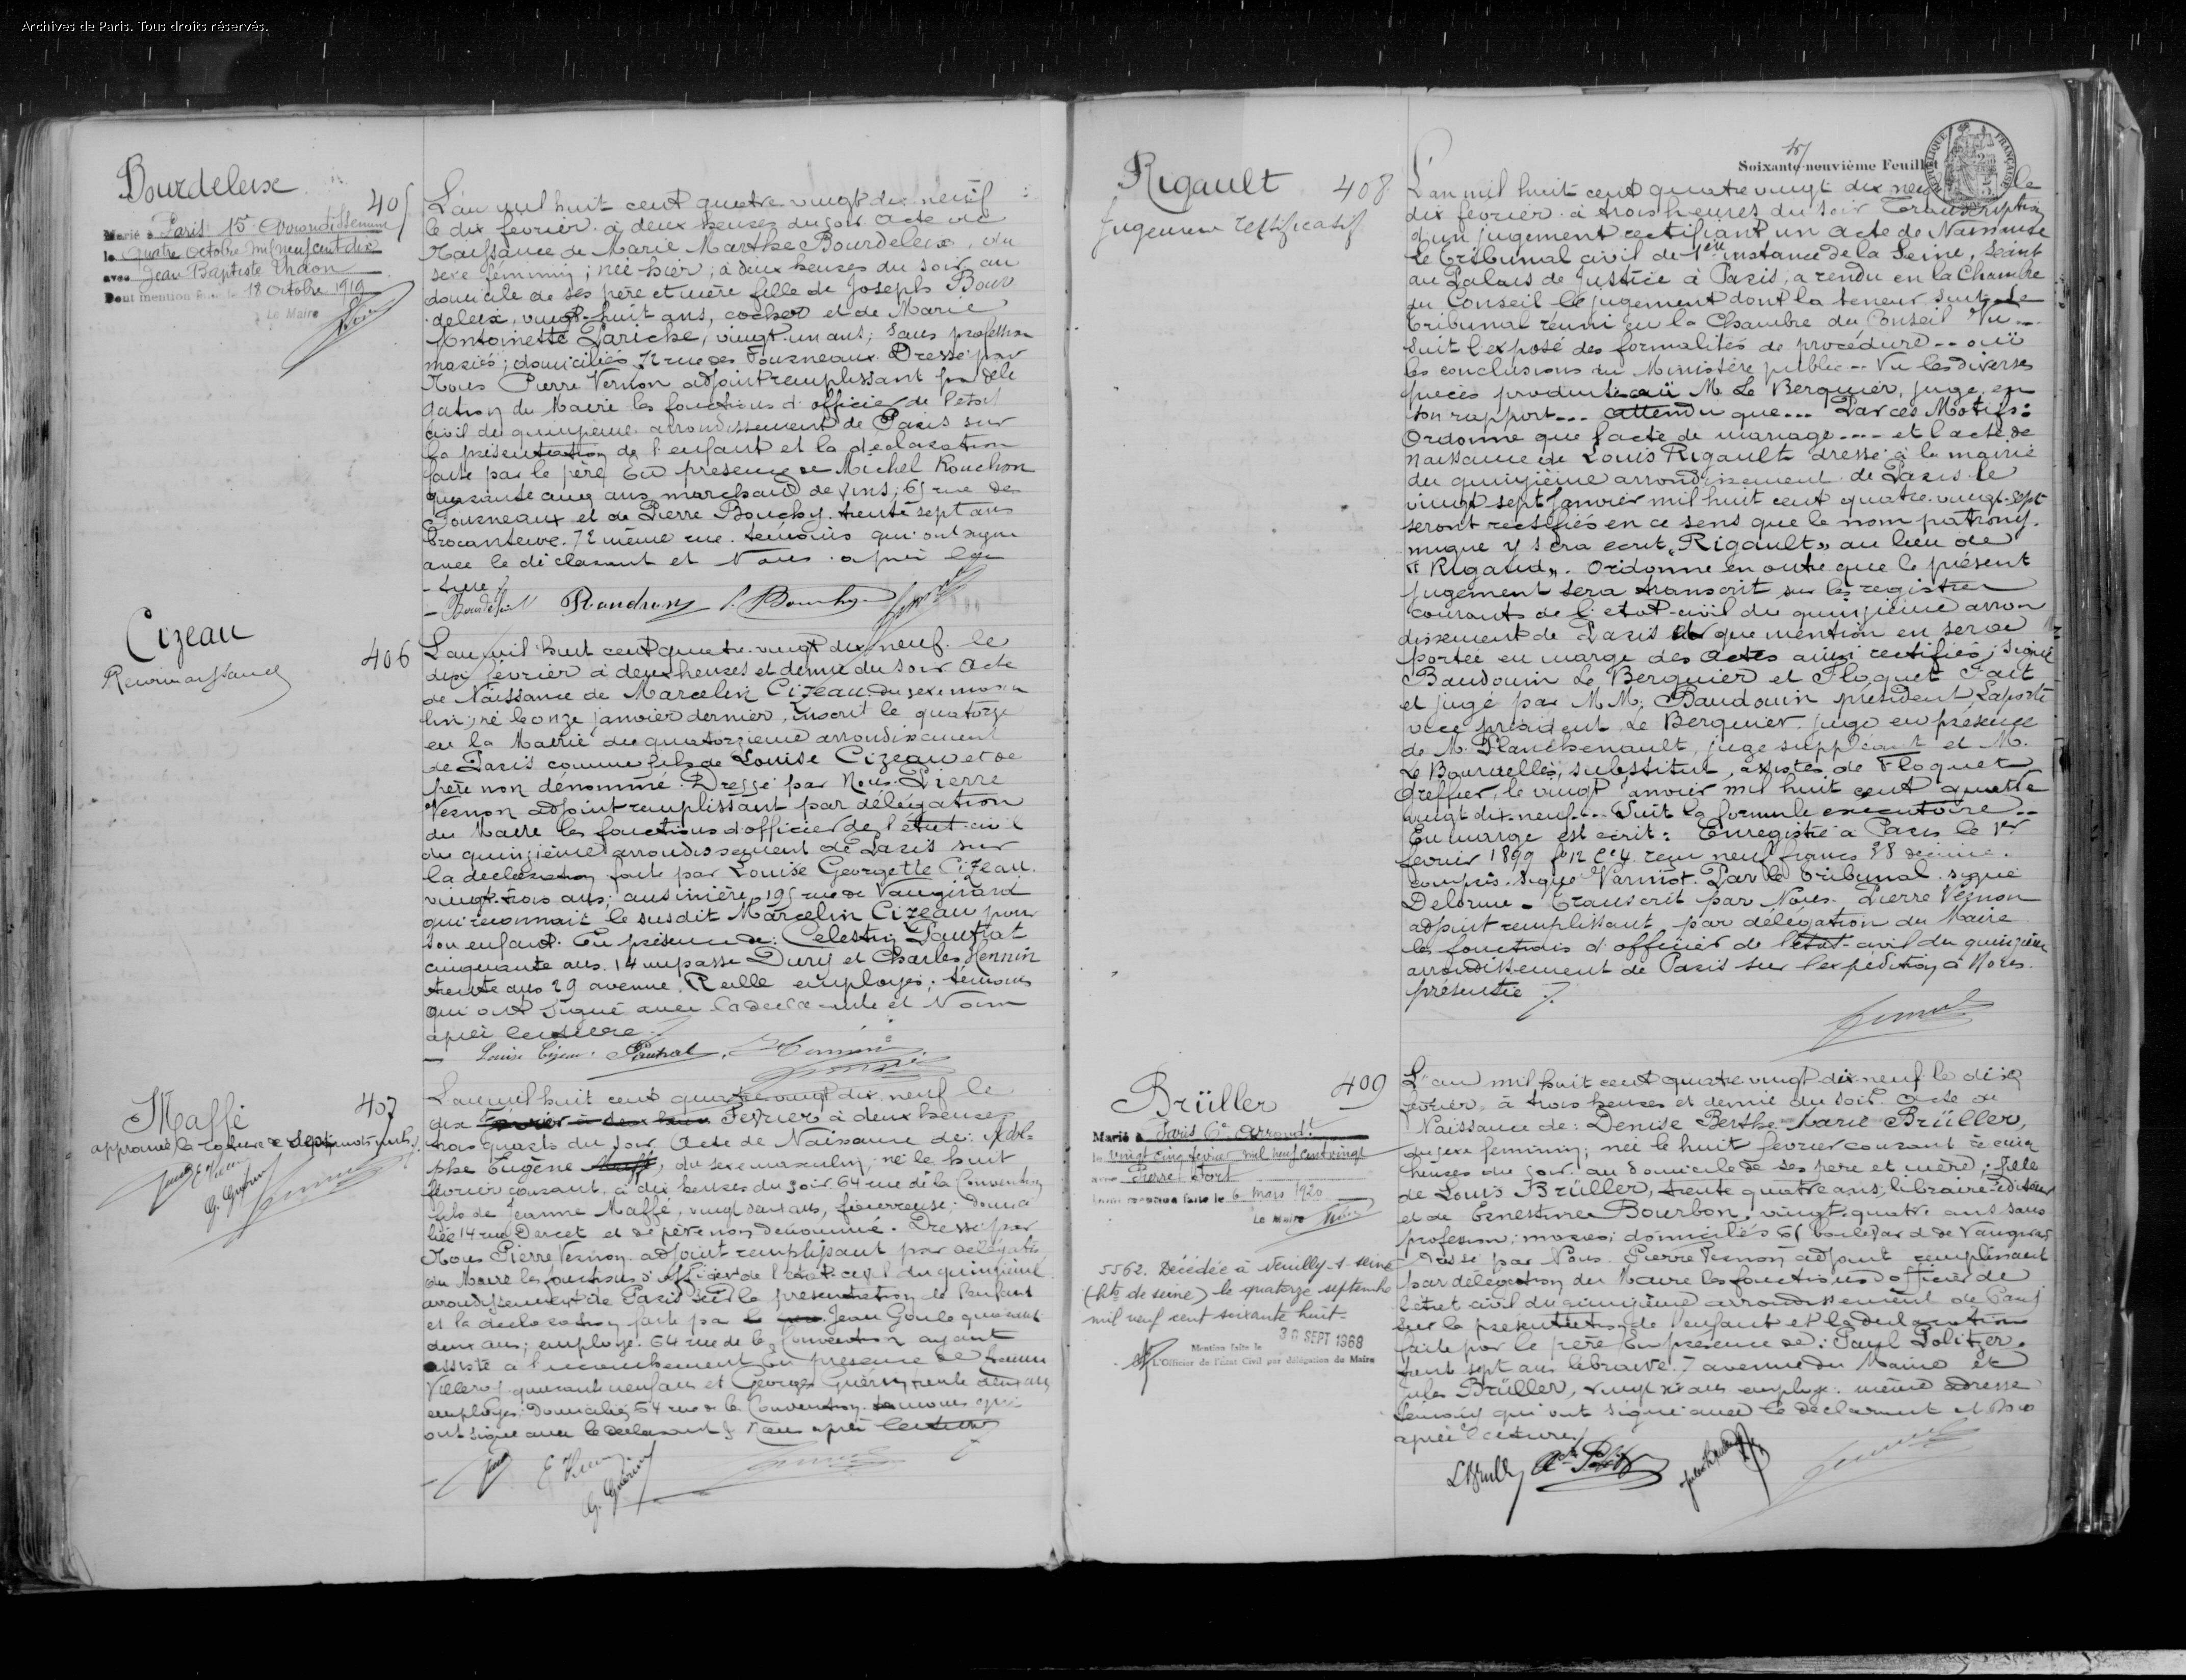 Archives de Paris. Tous droits réservés.
Bourdeleix
405
Marié à Paris 15e Arrondissement
le quatre Octobre mil neuf cent dix
avec Jean Baptiste
Dont mention faite le 18 Octobre 1919
Le Maire
L'an mil huit cent quatre vingt dix neuf
le dix février à deux heures du soir Acte de
Naissance de Marie Marthe Bourdeleix, du
sexe féminin; née hier; à deux heures du soir au
domicile de ses père et mère fille de Joseph Bour
deleix, vingt-huit ans, cocher et de Marie
Antoinette Lariche, vingt-un ans; sans profession
mariés; domiciliés 72 rue des Fourneaux. Dressé par
Nous Pierre Vernon adjoint remplissant par délé
gation du Maire les fonctions d'officier de l'état
civil du quinzième arrondissement de Paris sur
la présentation de l'enfant et la déclaration
faite par le père En présence de Michel Rouchon
quarante cinq ans marchand de vins; 65 rue des
Fourneaux et de Pierre Bouchy. trente sept ans
brocanteur. 72 même rue. témoins qui ont signé
avec le déclarant et Nous après lec
-ture
Cizeau
Reconnaissance
406
L'an mil huit cent quatre-vingt dix neuf. le
dix février à deux heures et demie du soir Acte
de Naissance de Marcelin Cizeau du sexe mascu
lin; né le onze janvier dernier, inscrit le quatorze
en la Mairie du quatorzième arrondissement
de Paris comme fils de Louise Cizeau et de
père non dénommé. Dressé par Nous Pierre
Vernon adjoint remplissant par délégation
du Maire les fonctions d'officier de l'état civil
du quinzième arrondissement de Paris sur
la déclaration faite par Louise Georgette Cizeau.
vingt-trois ans; cuisinière, 195 rue de Vaugirard
qui reconnait le susdit Marcelin Cizeau pour
son enfant. En présence de: Celestin Pautrat
cinquante ans. 14 impasse Dury et Charles Hennin
trente ans 29 avenue Reille employés; témoins
qui ont signé avec la déclarante et Nous
après lecture.
Louise Cizeau. Pautrat
Maffé
407
approuvé la rature de sept mots nuls
G. Guérin
L'an mil huit cent quatre vingt dix neuf le
dix Février à deux heures Février à deux heures
trois quarts du soir Acte de Naissance de: Adol-
phe Eugène Maffé, du sexe masculin, né le huit
février courant, à dix heures du soir 64 rue de la Convention
fils de Jeanne Maffé, vingt ans, domici
liée 14 rue Darcet et de père non dénommé. Dressé par
Nous Pierre Vernon adjoint remplissant par délégation
du Maire les fonctions d'officier de l'état civil du quinzième
arrondissement de Paris sur la présentation de l'enfant
et la déclaration faite par Jean Goule quarante
deux ans; employé. 64 rue de la Convention ayant
assisté à l'accouchement En présence de
Villeroy quarante neuf ans et Georges Guérin, trente deux ans
employés; domiciliés 64 rue de la Convention témoins qui
ont signé avec le déclarant & Nous après lecture
G. Guérin
Soixante-neuvième Feuillet
RÉPUBLIQUE FRANÇAISE
Rigault
408
Jugement rectificatif
L'an mil huit cent quatre vingt dix neuf le
dix février à trois heures du soir Transcription
d'un jugement rectifiant un Acte de Naissance
Le Tribunal civil de 1ère instance de la Seine, séant
au Palais de Justice à Paris, a rendu en la Chambre
du Conseil le jugement dont la teneur suit. Le
Tribunal réuni en la Chambre du Conseil Vu...
Suit l'exposé des formalités de procédure... ouï
les conclusions du Ministère public... Vu les diverses
pièces produites ouï M. Le Berquier, juge, en
son rapport... Attendu que... Par ces Motifs:
Ordonne que l'acte de mariage.... et l'acte de
naissance de Louis Rigault dressé à la mairie
du quinzième arrondissement de Paris le
vingt sept Janvier mil huit cent quatre-vingt-sept
seront rectifiés en ce sens que le nom patrony-
mique y sera écrit "Rigault" au lieu de
"Rigaud". Ordonne en outre que le présent
jugement sera transcrit sur les registres
courants de l'état-civil du quinzième arron
dissement de Paris et que mention en sera
portée en marge des Actes ainsi rectifiés; signé
Baudouin Le Berquier et Floquet Fait
et jugé par MM; Baudouin président, Laporte
vice président Le Berquier juge en présence
de M. Planchenault, juge suppléant et M.
Le Bourdellès, substitut, assistés de Floquet
Greffier, le vingt janvier mil huit cent quatre
vingt dix-neuf... Suit la formule exécutoire...
En marge est écrit: Enregistré à Paris le 1er
février 1899 fo 12 Ce 4. reçu neuf francs 38 décime.
compris. signé Parmiot. Par le Tribunal. signé
Delorme - Transcrit par Nous. Pierre Vernon
adjoint remplissant par délégation du Maire
les fonctions d'officier de l'état-civil du quinzième
arrondissement de Paris sur l'expédition à Nous
présentée
Brüller
409
Marié à Paris 6e Arrondt
le vingt cinq février mil neuf cent vingt
avec Pierre Fort
Dont mention faite le 6 mars 1920
Le Maire
5562. Décédée à Neuilly s. seine
(Hts de seine) le quatorze septembre
mil neuf cent soixante huit-
Mention faite le 30 SEPT 1968
L'Officier de l'État Civil par délégation du Maire
L'an mil huit cent quatre vingt dix-neuf le dix
février, à trois heures et demie du soir. Acte de
Naissance de: Denise Berthe Marie Brüller,
du sexe féminin; née le huit février courant à cinq
heures du soir au domicile de ses père et mère; fille
de Louis Brüller, trente quatre ans, libraire éditeur
et de Ernestine Bourbon, vingt-quatre ans sans
profession; mariés; domiciliés 65 boulevard de Vaugirard
Dressé par Nous. Pierre Vernon adjoint remplissant
par délégation du Maire les fonctions d'officier de
l'état civil du quinzième arrondissement de Paris
sur la présentation de l'enfant et la déclaration
faite par le père En présence de: Paul Politzer.
trente sept ans libraire. 7 avenue du Maine et
Jules Brüller, vingt six ans employé. même adresse
témoins qui ont signé avec le déclarant et Nous
après lecture